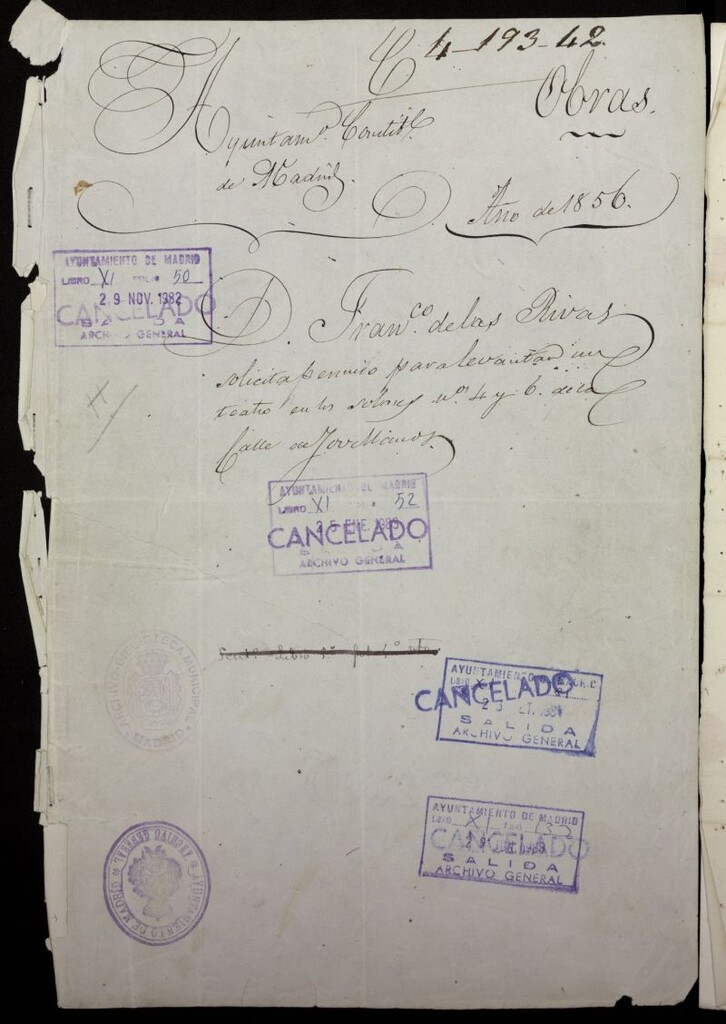 4-193-42
Obras.
Ayuntamᵗᵒ Constitˡ
de Madrid.
Año de 1856.
AYUNTAMIENTO DE MADRID
LIBRO XI FOLIO 50
29 NOV. 1982
CANCELADO
SALIDA
ARCHIVO GENERAL
D. Franᶜᵒ. de las Rivas
solicita permiso para levantar un
teatro en los solares nᵒˢ 4 y 6. de la
Calle de Jovellanos.
AYUNTAMIENTO DE MADRID
LIBRO XI 52
25 ENE. 1983
CANCELADO
SALIDA
ARCHIVO GENERAL
ARCHIVO
MUNICIPAL
MADRID
AYUNTAMIENTO DE MADRID
LIBRO
CANCELADO
SALIDA
ARCHIVO GENERAL
AYUNTAMIENTO DE MADRID
LIBRO XI
CANCELADO
SALIDA
ARCHIVO GENERAL
AYUNTAMIENTO DE MADRID
ARCHIVO GENERAL